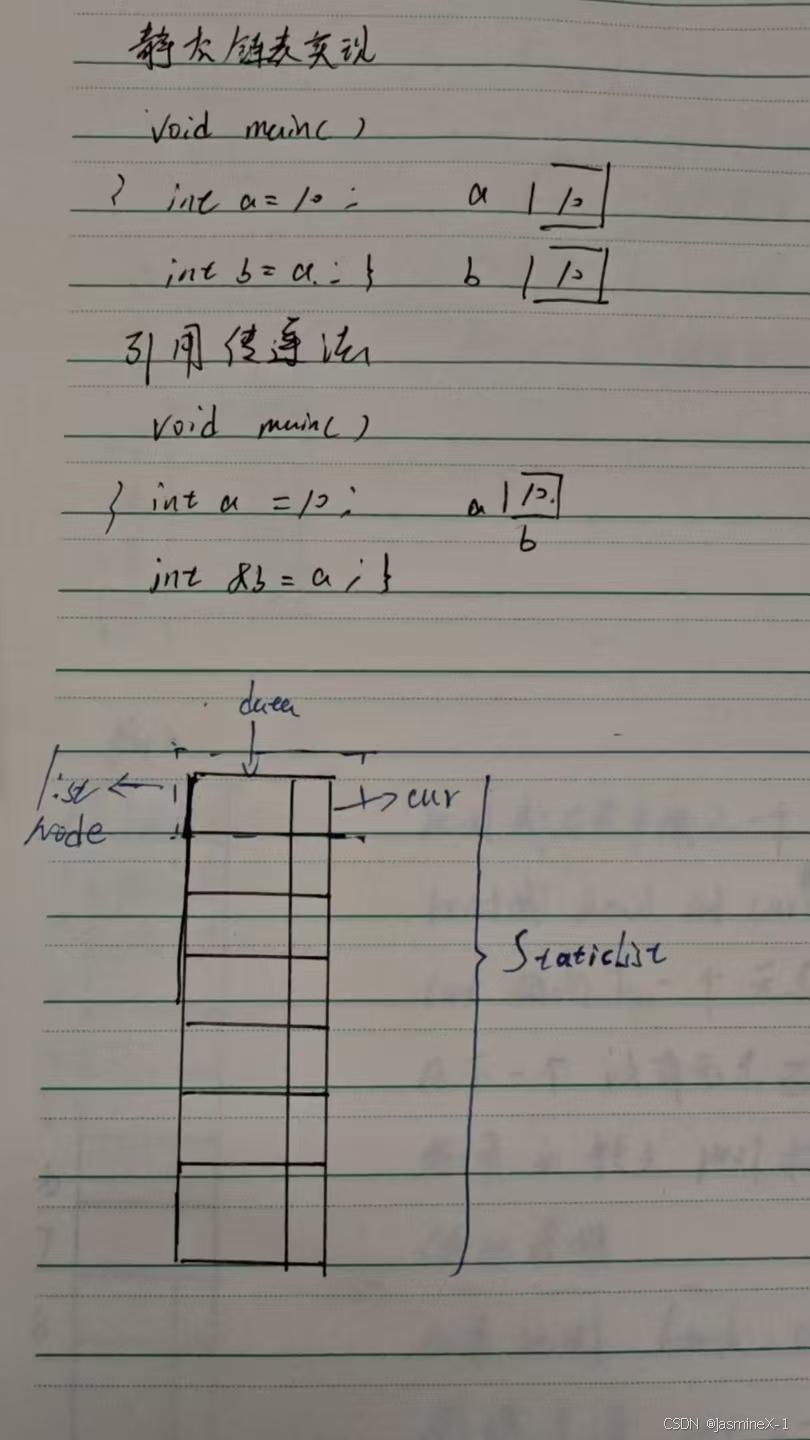 静态链表实现
void main()
{ int a = 10;   a | 10
int b = a; }   b | 10
引用传递法
void main()
{ int a = 10;   a | 10
b
int &b = a; }
data
list
node
cur
Staticlist
CSDN @JasmineX-1